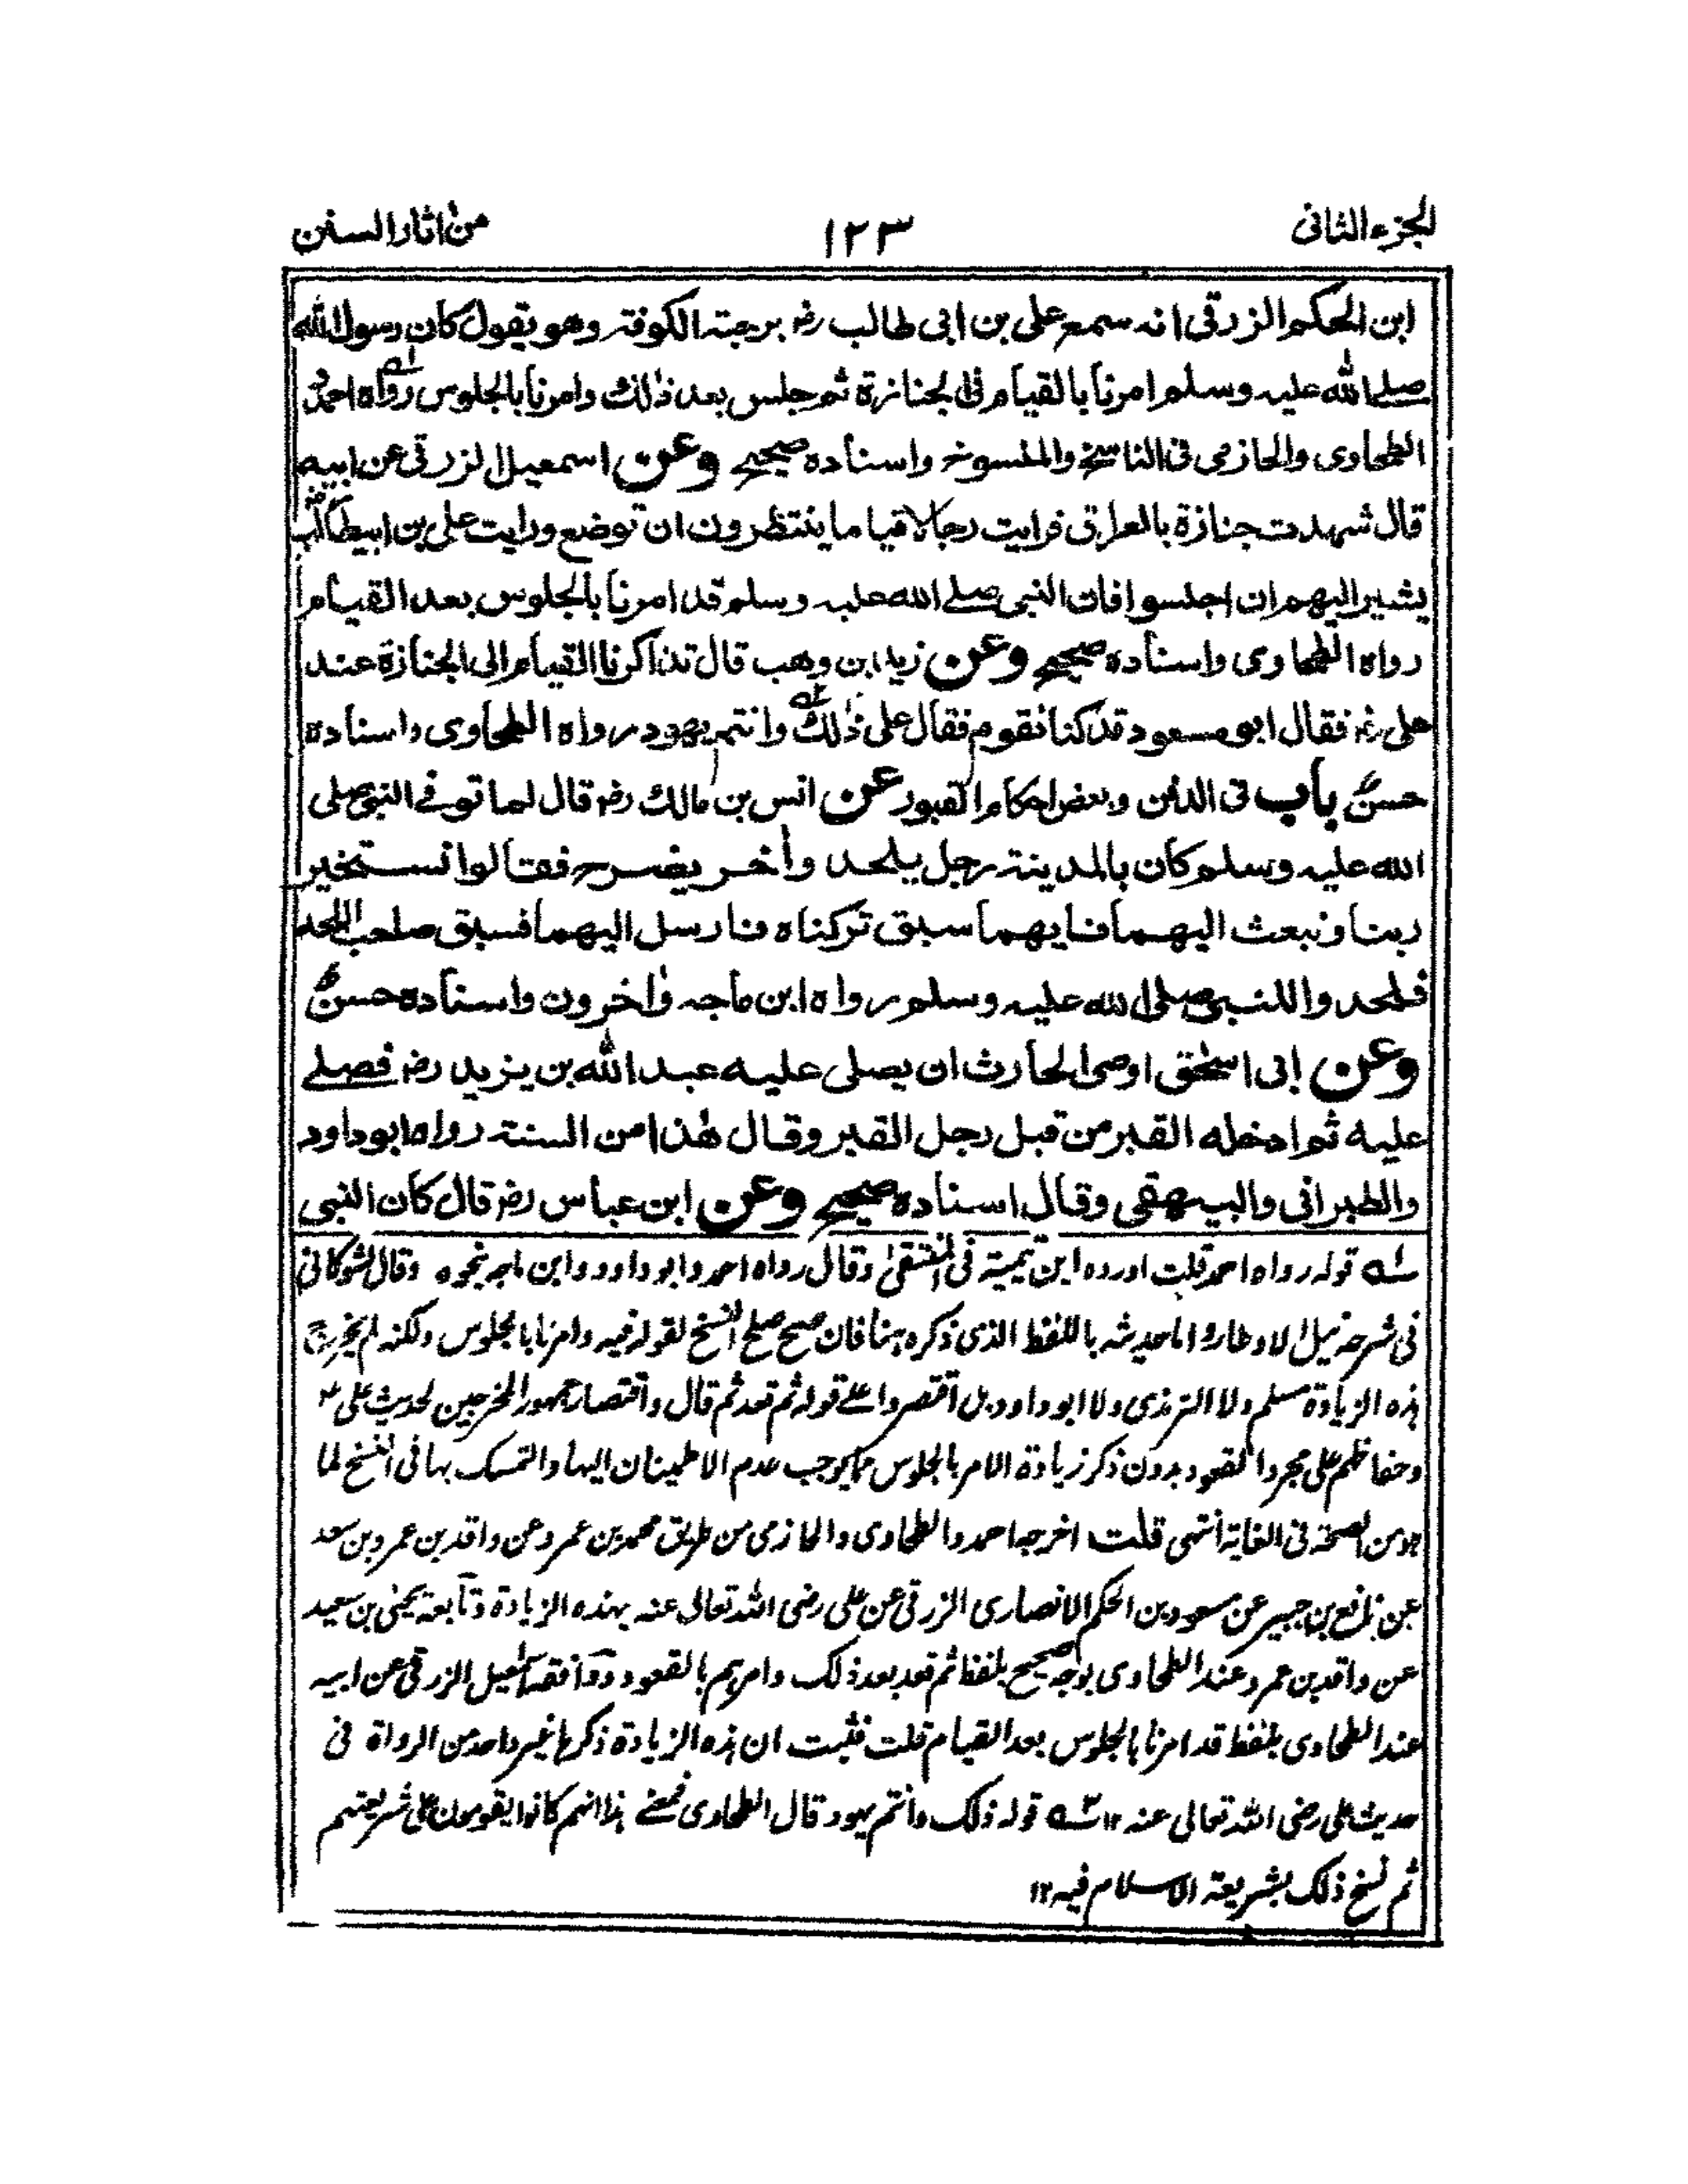 الجزء الثانی
۱۲۳
من اثار السنن
ابن الحکم الزرقی انه سمع علی بن ابی طالب رض برحبة الکوفة وهو یقول کان رسول الله
صلے الله علیه وسلم امرنا بالقیام فی الجنازة ثم جلس بعد ذٰلك وامرنا بالجلوس رواه احمد و
الطحاوی والحازمی فی الناسخ والمنسوخ واسناده صحیح وعن اسمعیل الزرقی عن ابیه
قال شهدت جنازة بالعراق فرایت رجالا قیاما ینتظرون ان توضع ورایت علی بن ابیطالب رض
یشیر الیهم ان اجلسوا فان النبی صلے الله علیه وسلم قد امرنا بالجلوس بعد القیام
رواه الطحاوی واسناده صحیح وعن زید ابن وهب قال تذاکرنا القیام الی الجنازة عند
علی رض فقال ابو مسعود قد کنا نقوم فقال علی ذٰلك وانتم یهود رواه الطحاوی واسناده
حسن باب فی الدفن وبعض احکام القبور عن انس بن مالك رض قال لما توفے النبی صلی
الله علیه وسلم کان بالمدینة رجل یلحد واٰخر یضرح فقالوا نستخیر
ربنا ونبعث الیهما فایهما سبق ترکناه فارسل الیهما فسبق صاحب اللحد
فلحدوا للنبی صلی الله علیه وسلم رواه ابن ماجه واٰخرون واسناده حسن
وعن ابی اسحٰق اوصی الحارث ان یصلی علیه عبد الله بن یزید رض فصلے
علیه ثم ادخله القبر من قبل رجل القبر وقال هٰذا من السنة رواه ابو داود
والطبرانی والبیهقی وقال اسناده صحیح وعن ابن عباس رض قال کان النبی
۱ه قوله رواه احمد قلت اورده ابن تیمیة فی المنتقیٰ وقال رواه احمد وابو داود وابن ماجه نحوه وقال الشوکانی
فی شرحه نیل الاوطار واما حدیثه باللفظ الذی ذکره هنا فان صح صلح النسخ لقوله فیه وامرنا بالجلوس ولکنه لم یخرج
هذه الزیادة مسلم ولا الترمذی ولا ابو داود بل اقتصروا علے قوله ثم قعد ثم قال واقتصار جمهور المخرجین لحدیث علی رض
وحفاظهم علی مجرد القعود بدون ذکر زیادة الامر بالجلوس مما یوجب عدم الاطمینان الیها والتمسک بها فی النسخ لما
هو من الصحة فی الغایة انتهی قلت اخرجه احمد والطحاوی والحازمی من طریق محمد بن عمرو عن واقد بن عمرو بن سعد
عن نافع بن جبیر عن مسعود بن الحکم الانصاری الزرقی عن علی رضی الله تعالی عنه بهذه الزیادة وتابعه یحیٰی بن سعید
عن واقد بن عمرو عند الطحاوی بوجه صحیح بلفظ ثم قعد بعد ذلک وامرهم بالقعود ووافقه اسمٰعیل الزرقی عن ابیه
عند الطحاوی بلفظ قد امرنا بالجلوس بعد القیام قلت فثبت ان هذه الزیادة ذکرها غیر واحد من الرواة فی
حدیث علی رضی الله تعالی عنه ۱۲ ۲ه قوله ذلک وانتم یهود قال الطحاوی فمعنے هذا انهم کانوا یقومون علی شریعتهم
ثم نسخ ذلک بشریعة الاسلام فیه ۱۲